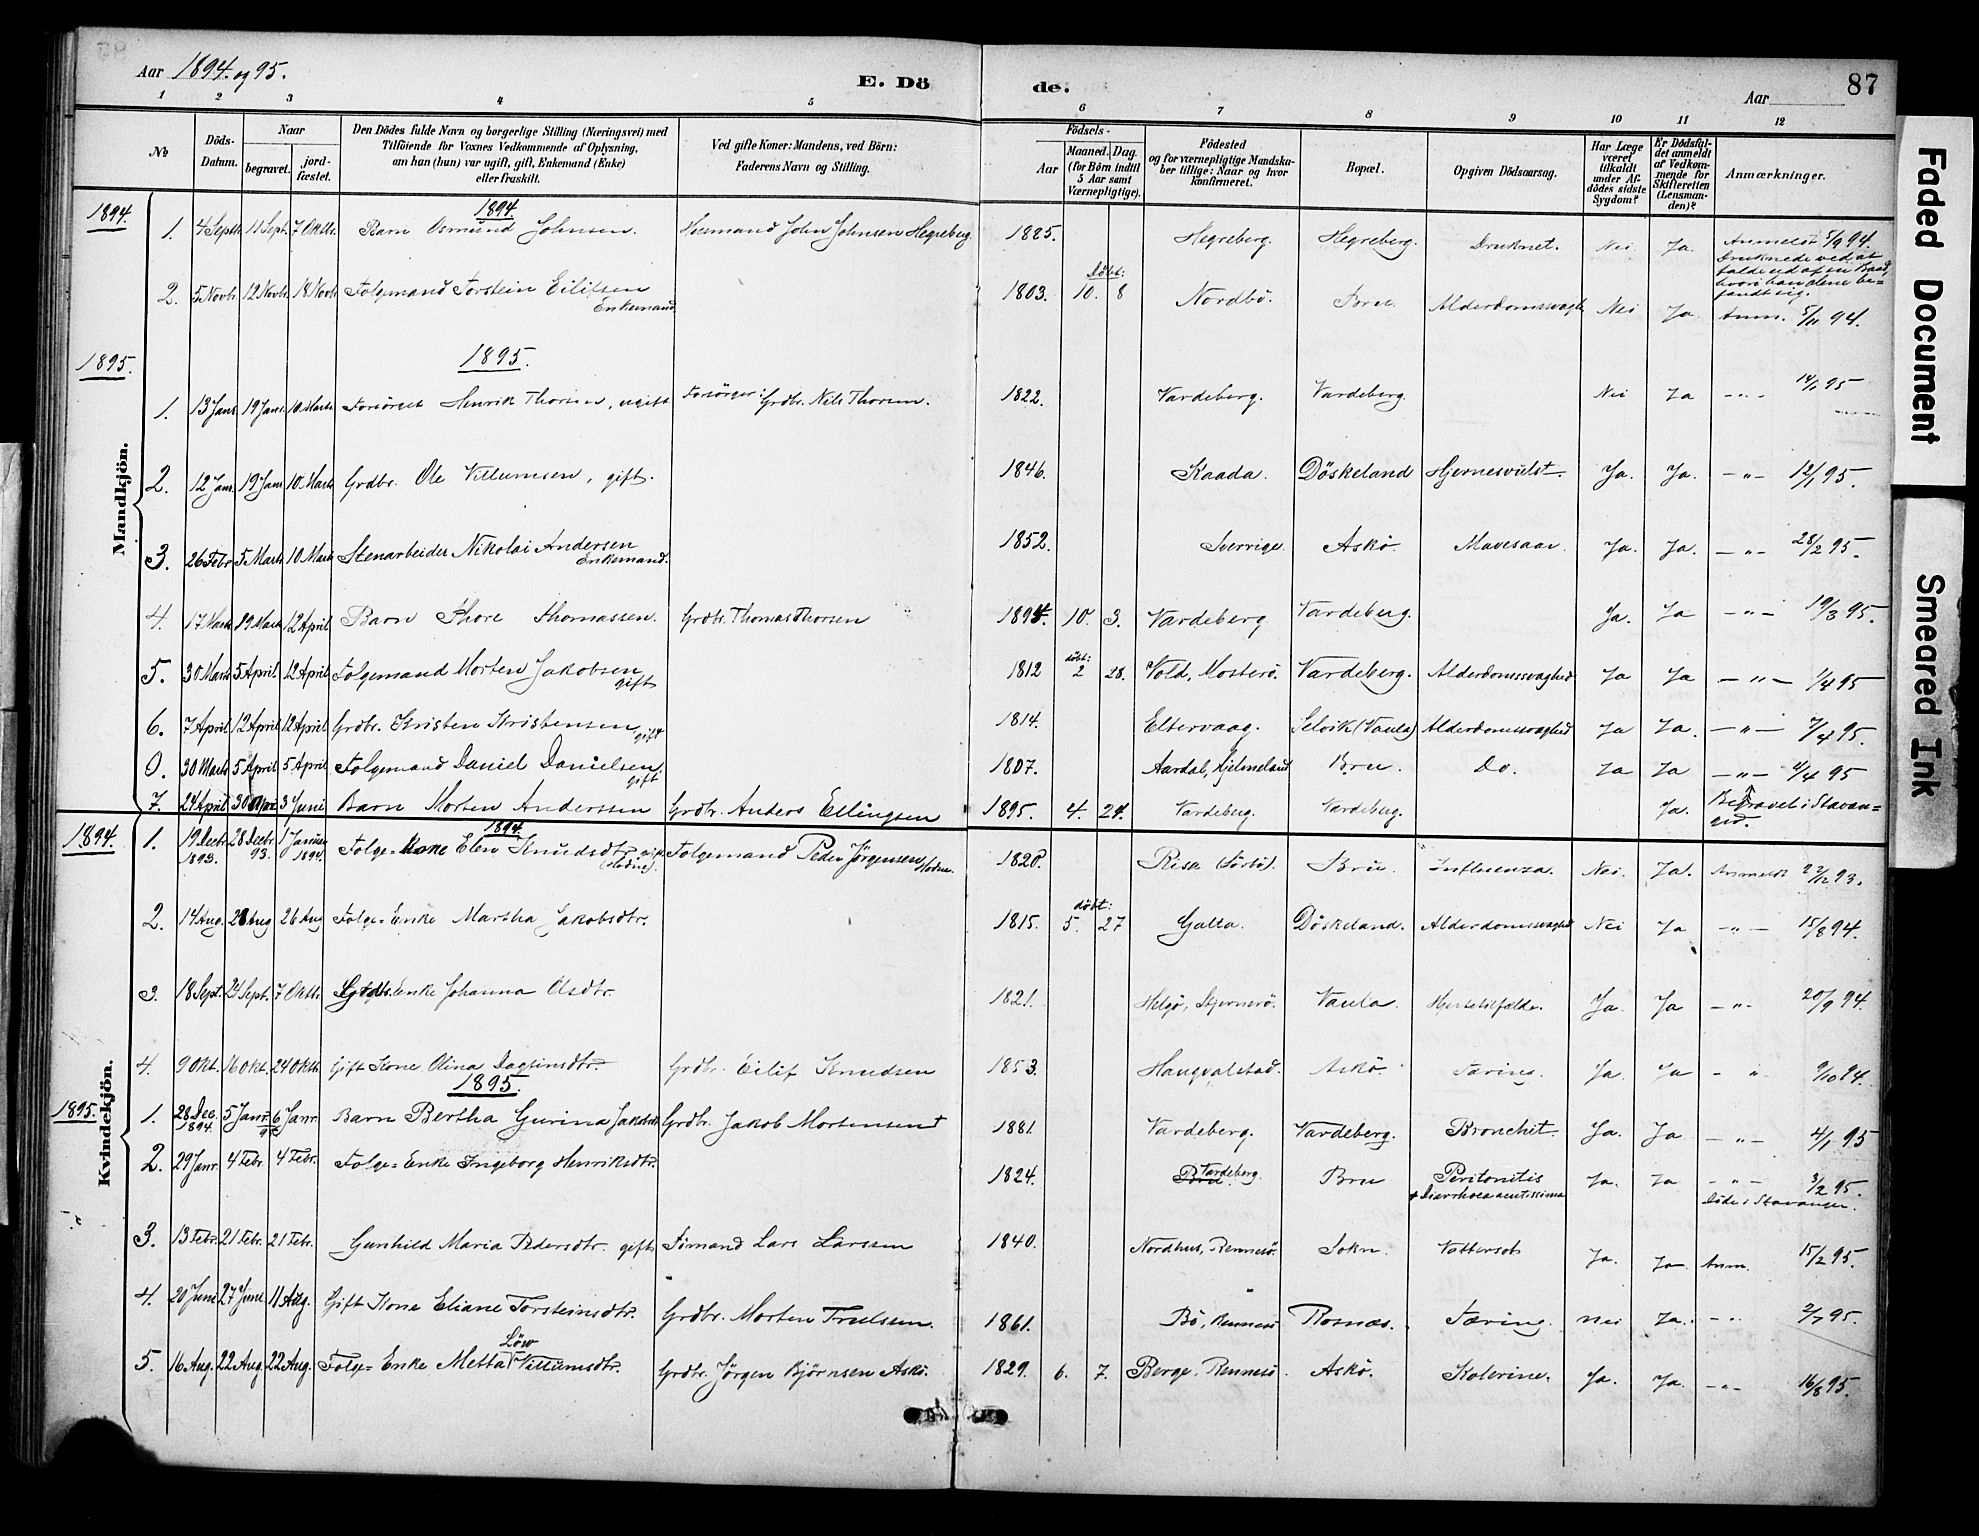 Aar 1894 og 95.
E. Dö
de.
Aar
87
1 2 3 4 5 6 7 8 9 10 11 12
№
Döds-Datum.
Naar
begravet.
jord-fæstet.
Den Dödes fulde Navn og borgerlige Stilling (Næringsvei) med
Tilföiende for Voxnes Vedkommende af Oplysning,
om han (hun) var ugift, gift, Enkemand (Enke)
eller fraskilt.
Ved gifte Koner: Mandens, ved Börn:
Faderens Navn og Stilling.
Födsels-
Aar
Maaned. Dag.
(for Börn indtil
5 Aar samt
Værnepligtige).
Födested
og for værnepligtige Mandska-
ber tillige: Naar og hvor
konfirmeret.
Bopæl.
Opgiven Dödsaarsag.
Har Læge
været
tilkaldt
under Af-
dödes sidste
Sygdom?
Er Dödsfal-
det anmeldt
af Vedkom-
mende for
Skifteretten
(Lensman-
den)?
Anmærkninger.
Mandkjön.
1894.
1894.
1. 4 Septb. 11 Sept. 7 Oktb. Barn Osmund Johnsen. Husmand John Johnsen Hegreberg 1885. Hegreberg. Hegreberg. Druknet. Nei Ja. Anmeldt 5/9 94.
Druknede ved at
falde ud af en Baad,
hvori han alene be-
fandt sig.
2. 5 Novb. 12 Novb. 18 Novb. Folgemand Torstein Eilifsen Enkemand. 1803. döbt: 10. 8 Nordbö. Bru. Alderdomssvagh. Nei Ja. Anm. 5/11 94.
1895.
1895.
1. 13 Janr. 19 Janr. 10 Marts Forsörget Henrik Thorsen, ugift Forsörger: Grdbr. Nils Thorsen. 1822. Vardeberg. Vardeberg Nei Ja — " — 14/1 95
2. 12 Janr. 19 Janr. 10 Marts Grdbr. Ole Villumsen, gift. 1846. Kaada. Döskeland Hjernesvulst. Ja. Ja. — " — 12/1 95.
3. 26 Febr. 5 Marts 10 Marts Stenarbeider Nikolai Andersen Enkemand. 1852. Sverrige. Askö. Mavesaar. Ja. Ja. — " — 28/2 95.
4. 17 Marts 29 Marts 12 April Barn Thore Thomassen. Grdbr. Thomas Thorsen 1894. 10. 3. Vardeberg Vardeberg. Ja. Ja — " — 19/3 95.
5. 30 Marts 5 April 12 April Folgemand Morten Jakobsen gift 1812 döbt: 2 28. Vold, Mosterö. Vardeberg. Alderdomssvaghed Ja Ja — " — 1/4 95
6. 7 April 12 April 12 April Grdbr. Kristen Kristensen gift 1814. Eltervaag. Selvik (Vaula) Alderdomssvaghed Ja Ja. — " — 7/4 95.
0. 30 Marts 5 April 5 April Folgemand Daniel Danielsen. gift 1807. Aardal, Hjelmeland Bru. Do. Ja Ja — " — 4/4 95
7. 24 April 30 Apri 3 Juni Barn Morten Anderssen Grdbr. Anders Ellingsen 1895. 4. 24. Vardeberg. Vardeberg. Ja. Begravet i Stavan-
ger.
Kvindekjön.
1894.
1894.
1. 19 Decbr. 1893. 28 Decbr. 93. 1 Januar 1894. Folge-Kone Elen Knudsdtr. gift (Hodne). Folgemand Peder Jörgensen Hodne. 1820. Risa (Sörbö). Bru. Influenza. Nei. Ja. Anmeldt 22/12 93.
2. 14 Aug. 28 Aug 26 Aug Folge-Enke Martha Jakobsdtr. 1815. döbt: 5. 27 Galta. Döskeland. Alderdomssvaghed Nei Ja — " — 15/8 94.
3. 18 Sept. 24 Sept. 7 Oktb. Grdbr. Enke Johanna Olsdtr. 1821. Helgö, Stjernerö. Vaula. Hjertetilfælde. Ja Ja — " — 20/9 94.
4. 9 Okt. 16 Okt. 24 Oktb. Gift Kone Olina Dagfinsdtr. Grdbr. Eilif Knudsen 1853. Haugvalstad. Askö. Tæring. Ja. Ja — " 9/10 94.
1895.
1895.
1. 28 Dec. 1894. 5 Janr. 95 6 Janr. Barn Bertha Gurina Jakobsdtr Grdbr. Jakob Mortensen 1881. Vardeberg. Vardeberg. Bronchit. Ja. Ja — " — 4/1 95
2. 29 Janr. 4 Febr. 4 Febr. Folge-Enke Ingeborg Henriksdtr. 1824. Bru. Vardeberg. Bru Peritonitis + Diarrhoea acutissima Ja. Ja — " — 3/2 95.
Döde i Stavanger.
3. 13 Febr. 21 Febr. 21 Febr. Gunhild Maria Pedersdtr. gift Formand Lars Larssen 1840. Nordhus, Rennesö. Sokn. Vattersot Ja. Ja Anm. 15/2 95.
4. 20 Juni 27 Juni 11 Aug. Gift Kone Eliane Torsteinsdtr. Grdbr. Morten Trulssen. 1861. Bö, Rennesö Rosnæs. Tæring. Nei Ja. — " 2/7 95.
5. 16 Aug. 22 Aug. 22 Aug. Folge-Enke Metta Löw Villumsdtr. Grdbr. Jörgen Björnsen Askö. 1829. 6. 7. Berge, Rennesö. Askö. Kolerine. Ja. Ja. — " — 16/8 95.
Faded Document
Smeared Ink